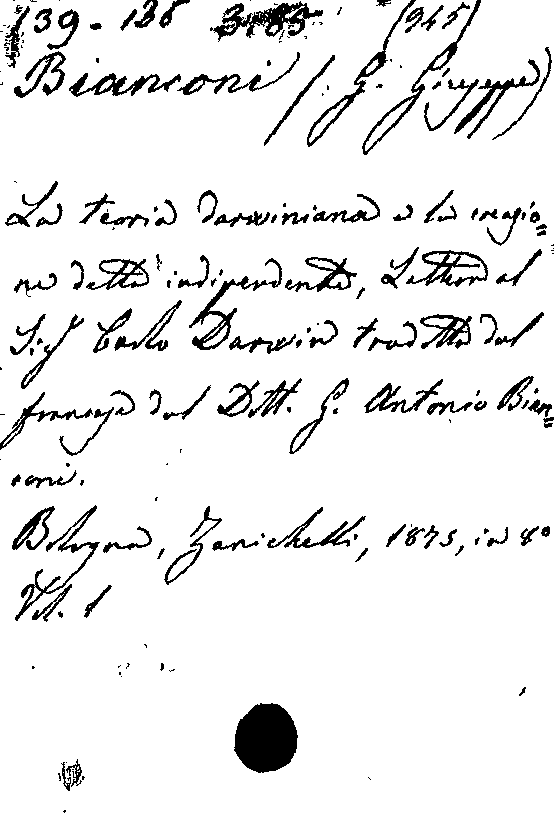 139-136 3.85 (945)
Bianconi / G. Giuseppe)
La teoria darwiniana e la creazio=
ne detta indipendente, Lettera al
Sig Carlo Darwin tradotta dal
francese dal Dott. G. Antonio Bian=
coni.
Bologna, Zanichelli, 1875, in 8º
Vol. 1